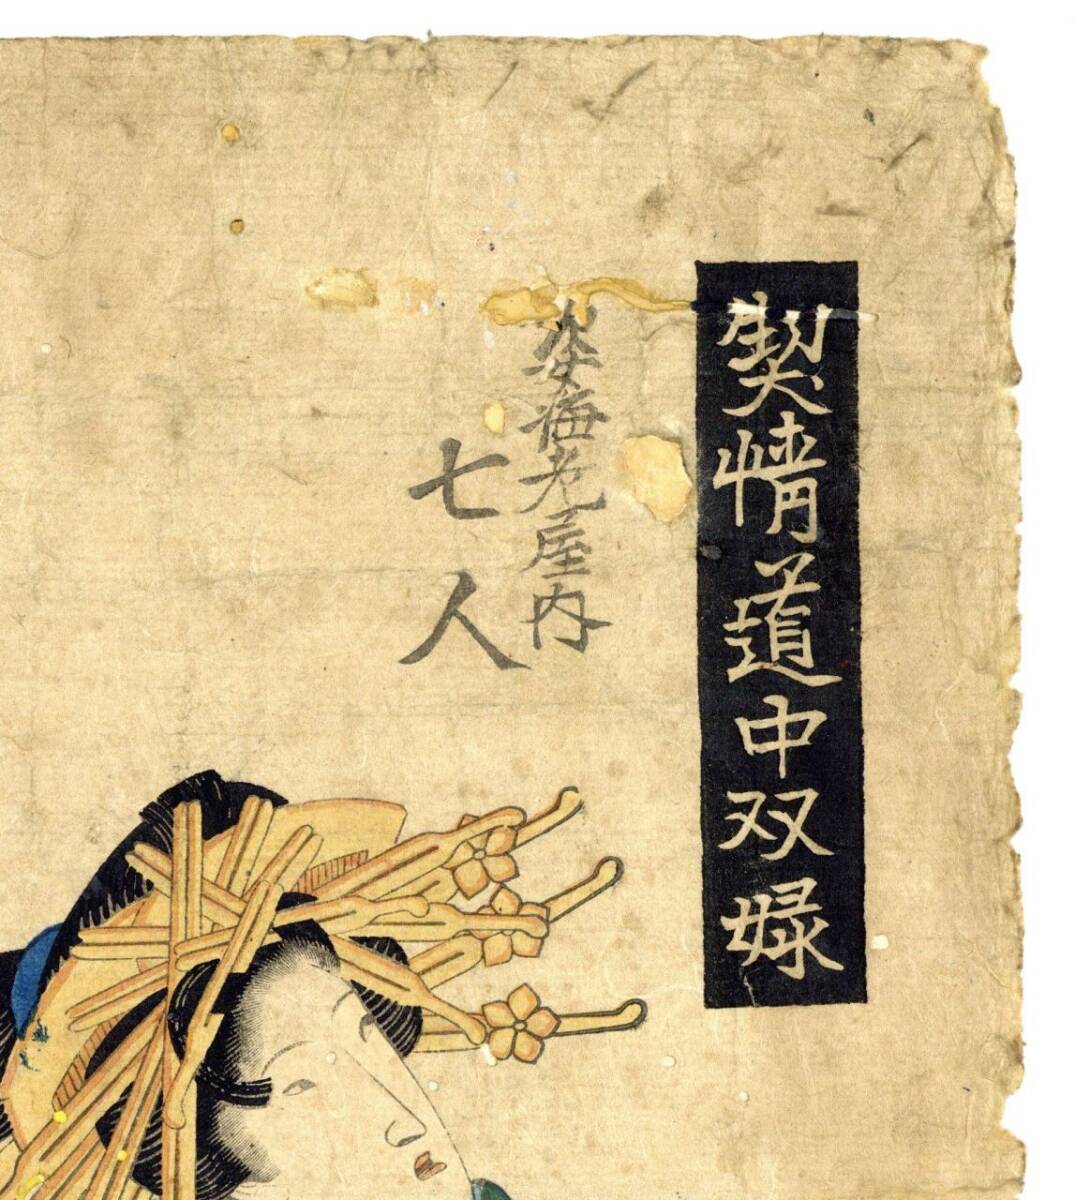 契情道中双娽
姿海老屋内
七人